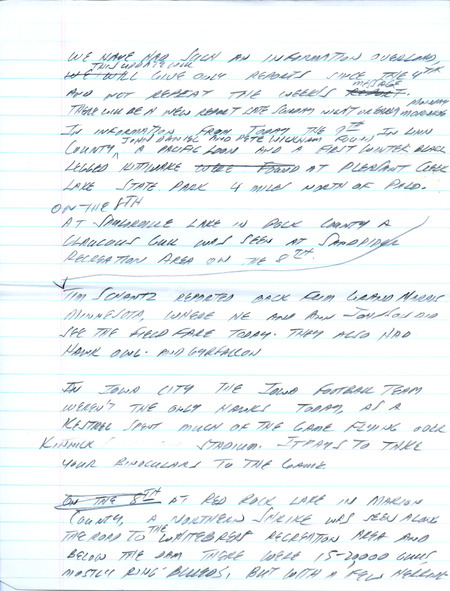 WE HAVE HAD SUCH AN INFORMATION OVERLOAD,
THIS UPDATE WILL
WE WILL GIVE ONLY REPORTS SINCE THE 4TH
AND NOT REPEAT THE WEEKS REPORT. MESSAGE
THERE WILL BE A NEW REPORT LATE SUNDAY NIGHT OR EARLY MONDAY MORNING
IN INFORMATION FROM TODAY THE 9TH IN LINN
COUNTY, JOHN DANIEL AND PETE WICKHAM FOUND A PACIFIC LOON AND A FIRST WINTER BLACK
LEGGED KITTIWAKE WERE FOUND AT PLEASANT CREEK
LAKE STATE PARK 4 MILES NORTH OF PALO.
ON THE 8TH
AT SAYLORVILLE LAKE IN POLK COUNTY A
GLAUCOUS GULL WAS SEEN AT SANDPIPER
RECREATION AREA ON THE 8TH.
TIM SCHANTZ REPORTED BACK FROM GRAND MARAIS
MINNESOTA, WHERE HE AND ANN JOHNSON DID
SEE THE FIELDFARE TODAY. THEY ALSO HAD
HAWK OWL. AND GYRFALCON
IN IOWA CITY THE IOWA FOOTBALL TEAM
WEREN'T THE ONLY HAWKS TODAY, AS A
KESTREL SPENT MUCH OF THE GAME FLYING OVER
KINNICK STADIUM. IT PAYS TO TAKE
YOUR BINOCULARS TO THE GAME
ON THE 8TH AT RED ROCK LAKE IN MARION
COUNTY, A NORTHERN SHRIKE WAS SEEN ALONG
THE ROAD TO THE WHITEBREAST RECREATION AREA AND
BELOW THE DAM THERE WERE 15-20000 GULLS
MOSTLY RING-BILLEDS, BUT WITH A FEW HERRING